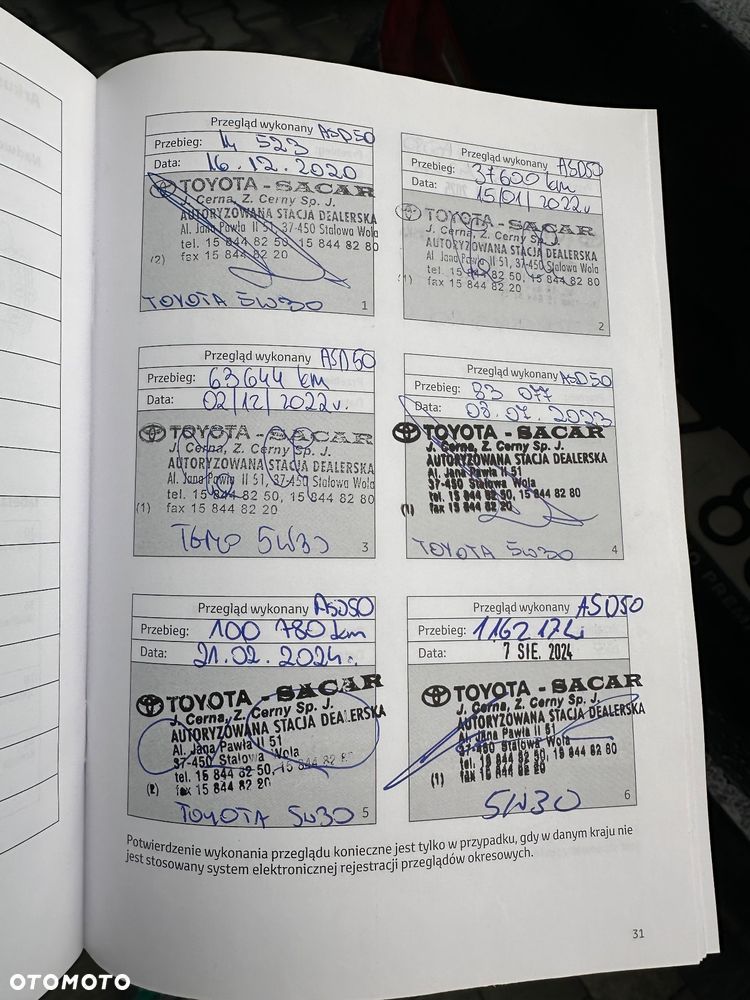 Przegląd wykonany ASD50
Przebieg: 14 523
Data: 16.12.2020
TOYOTA - SACAR
J. Cerna, Z. Cerny Sp. J.
AUTORYZOWANA STACJA DEALERSKA
Al. Jana Pawła II 51, 37-450 Stalowa Wola
tel. 15 844 82 50, 15 844 82 80
(2) fax 15 844 82 20
TOYOTA 5W30
1
Przegląd wykonany ASD50
Przebieg: 37600 km
Data: 15/01/2022r
TOYOTA - SACAR
J. Cerna, Z. Cerny Sp. J.
AUTORYZOWANA STACJA DEALERSKA
Al. Jana Pawła II 51, 37-450 Stalowa Wola
tel. 15 844 82 50, 15 844 82 80
(1) fax 15 844 82 20
2
Przegląd wykonany ASD50
Przebieg: 63644 km
Data: 02/12/2022r.
TOYOTA - SACAR
J. Cerna, Z. Cerny Sp. J.
AUTORYZOWANA STACJA DEALERSKA
Al. Jana Pawła II 51, 37-450 Stalowa Wola
tel. 15 844 82 50, 15 844 82 80
(1) fax 15 844 82 20
5W30
3
Przegląd wykonany ASD50
Przebieg: 83 077
Data: 08.07.2023
TOYOTA - SACAR
J. Cerna, Z. Cerny Sp. J.
AUTORYZOWANA STACJA DEALERSKA
Al. Jana Pawła II 51
37-450 Stalowa Wola
tel. 15 844 82 50, 15 844 82 80
(1) fax 15 844 82 20
TOYOTA 5W30
4
Przegląd wykonany ASD50
Przebieg: 100 780 km
Data: 21.02.2024r.
TOYOTA - SACAR
J. Cerna, Z. Cerny Sp. J.
AUTORYZOWANA STACJA DEALERSKA
Al. Jana Pawła II 51
37-450 Stalowa Wola
tel. 15 844 82 50, 15 844 82 80
(2) fax 15 844 82 20
TOYOTA 5W30
5
Przegląd wykonany ASD50
Przebieg:
Data: 7 SIE. 2024
TOYOTA - SACAR
J. Cerna, Z. Cerny Sp. J.
AUTORYZOWANA STACJA DEALERSKA
Al. Jana Pawła II 51
37-450 Stalowa Wola
tel. 15 844 82 50, 15 844 82 80
(1) fax 15 844 82 20
5W30
6
Potwierdzenie wykonania przeglądu konieczne jest tylko w przypadku, gdy w danym kraju nie
jest stosowany system elektronicznej rejestracji przeglądów okresowych.
31
OTOMOTO